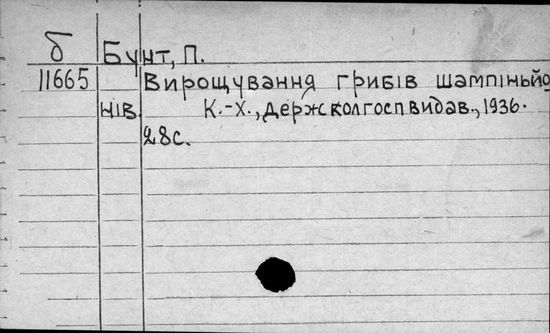 б Бунт, П.
11665 Вирощування грибів шампіньйо
нів. К.-Х., Держколгоспвидав., 1936.
28с.